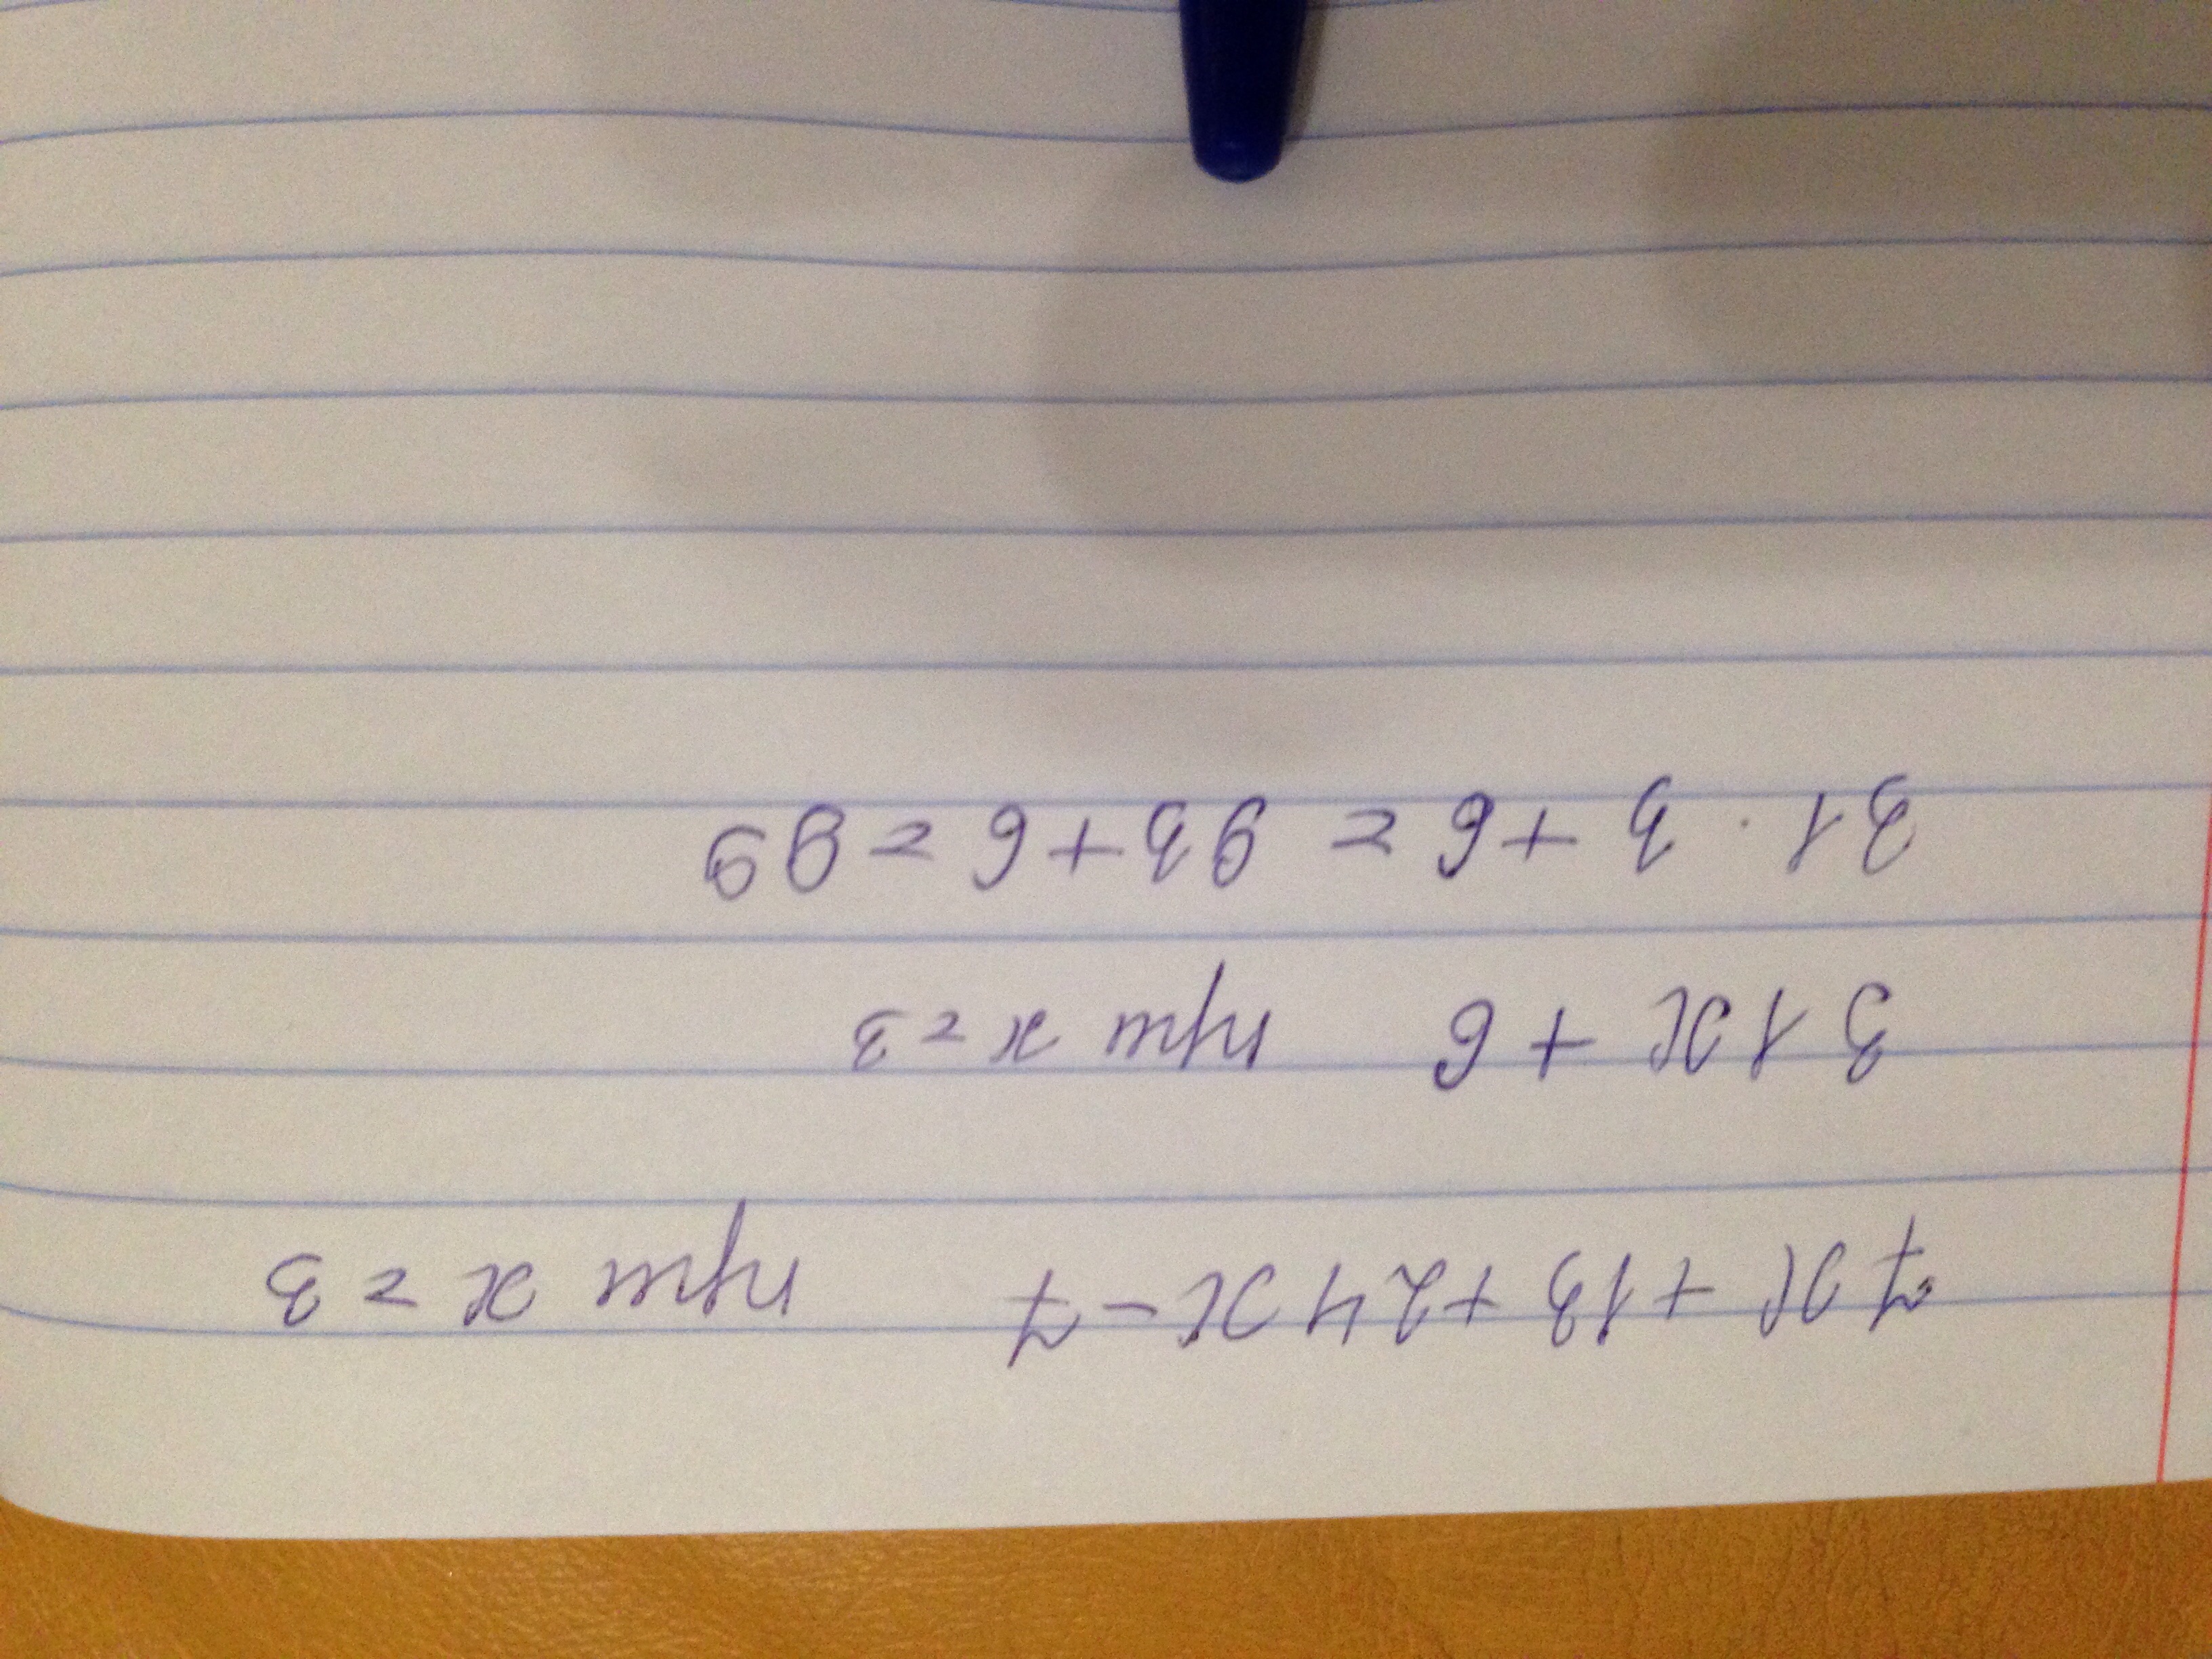 7x + 13 + 24x - 7 при x = 3
31x + 6 при x = 3
31 · 3 + 6 = 93 + 6 = 99